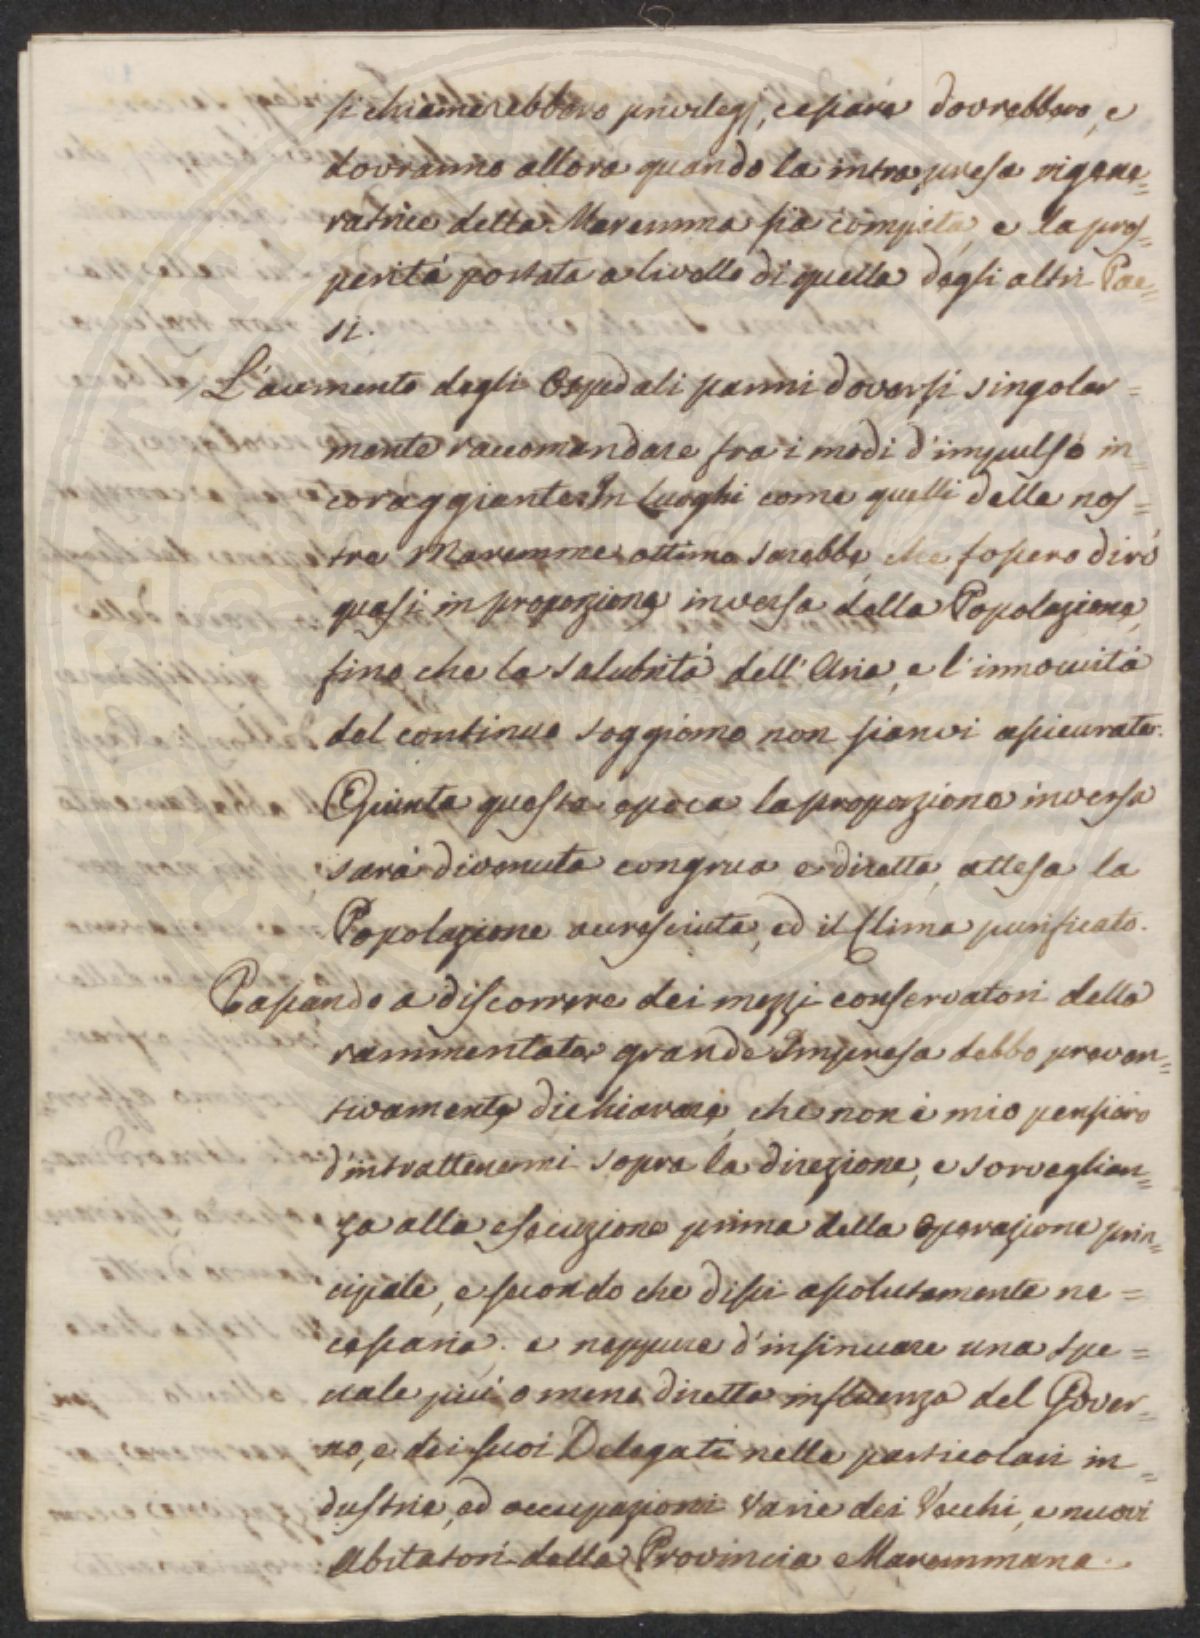 si chiamerebbero privilegj, cessare dovrebbero, e
dovranno allora quando la intrapresa rigene=
ratrice della Maremma sia compita, e la pros=
perità portata a livello di quella degli altri Pae=
si.
L'aumento degli Ospedali parmi doversi singolar=
mente raccomandare fra i modi d'impulso in=
coraggiante. In Luoghi come quelli delle nos=
tre Maremme ottimo sarebbe che fossero dirò
quasi in proporzione inversa della Popolazione,
fino che la salubrità dell'Aria, e l'innocuità
del continuo soggiorno non sianvi assicurate.
Giunta questa epoca la proporzione inversa
sarà divenuta congrua e diretta, attesa la
Popolazione accresciuta, ed il Clima purificato.
Passando a discorrere dei mezzi conservatori della
rammentata grande Impresa debbo preven=
tivamente dichiarare, che non è mio pensiero
d'intrattenermi sopra la direzione, e sorveglian=
za alla esecuzione prima della Operazione prin=
cipale, e secondo che dissi assolutamente ne=
cessaria; e neppure d'insinuare una spe=
ciale più o meno diretta influenza del Gover=
no, e dei suoi Delegati nelle particolari in=
dustrie, ed occupazioni varie dei Vecchi, e nuovi
Abitatori della Provincia Maremmana.